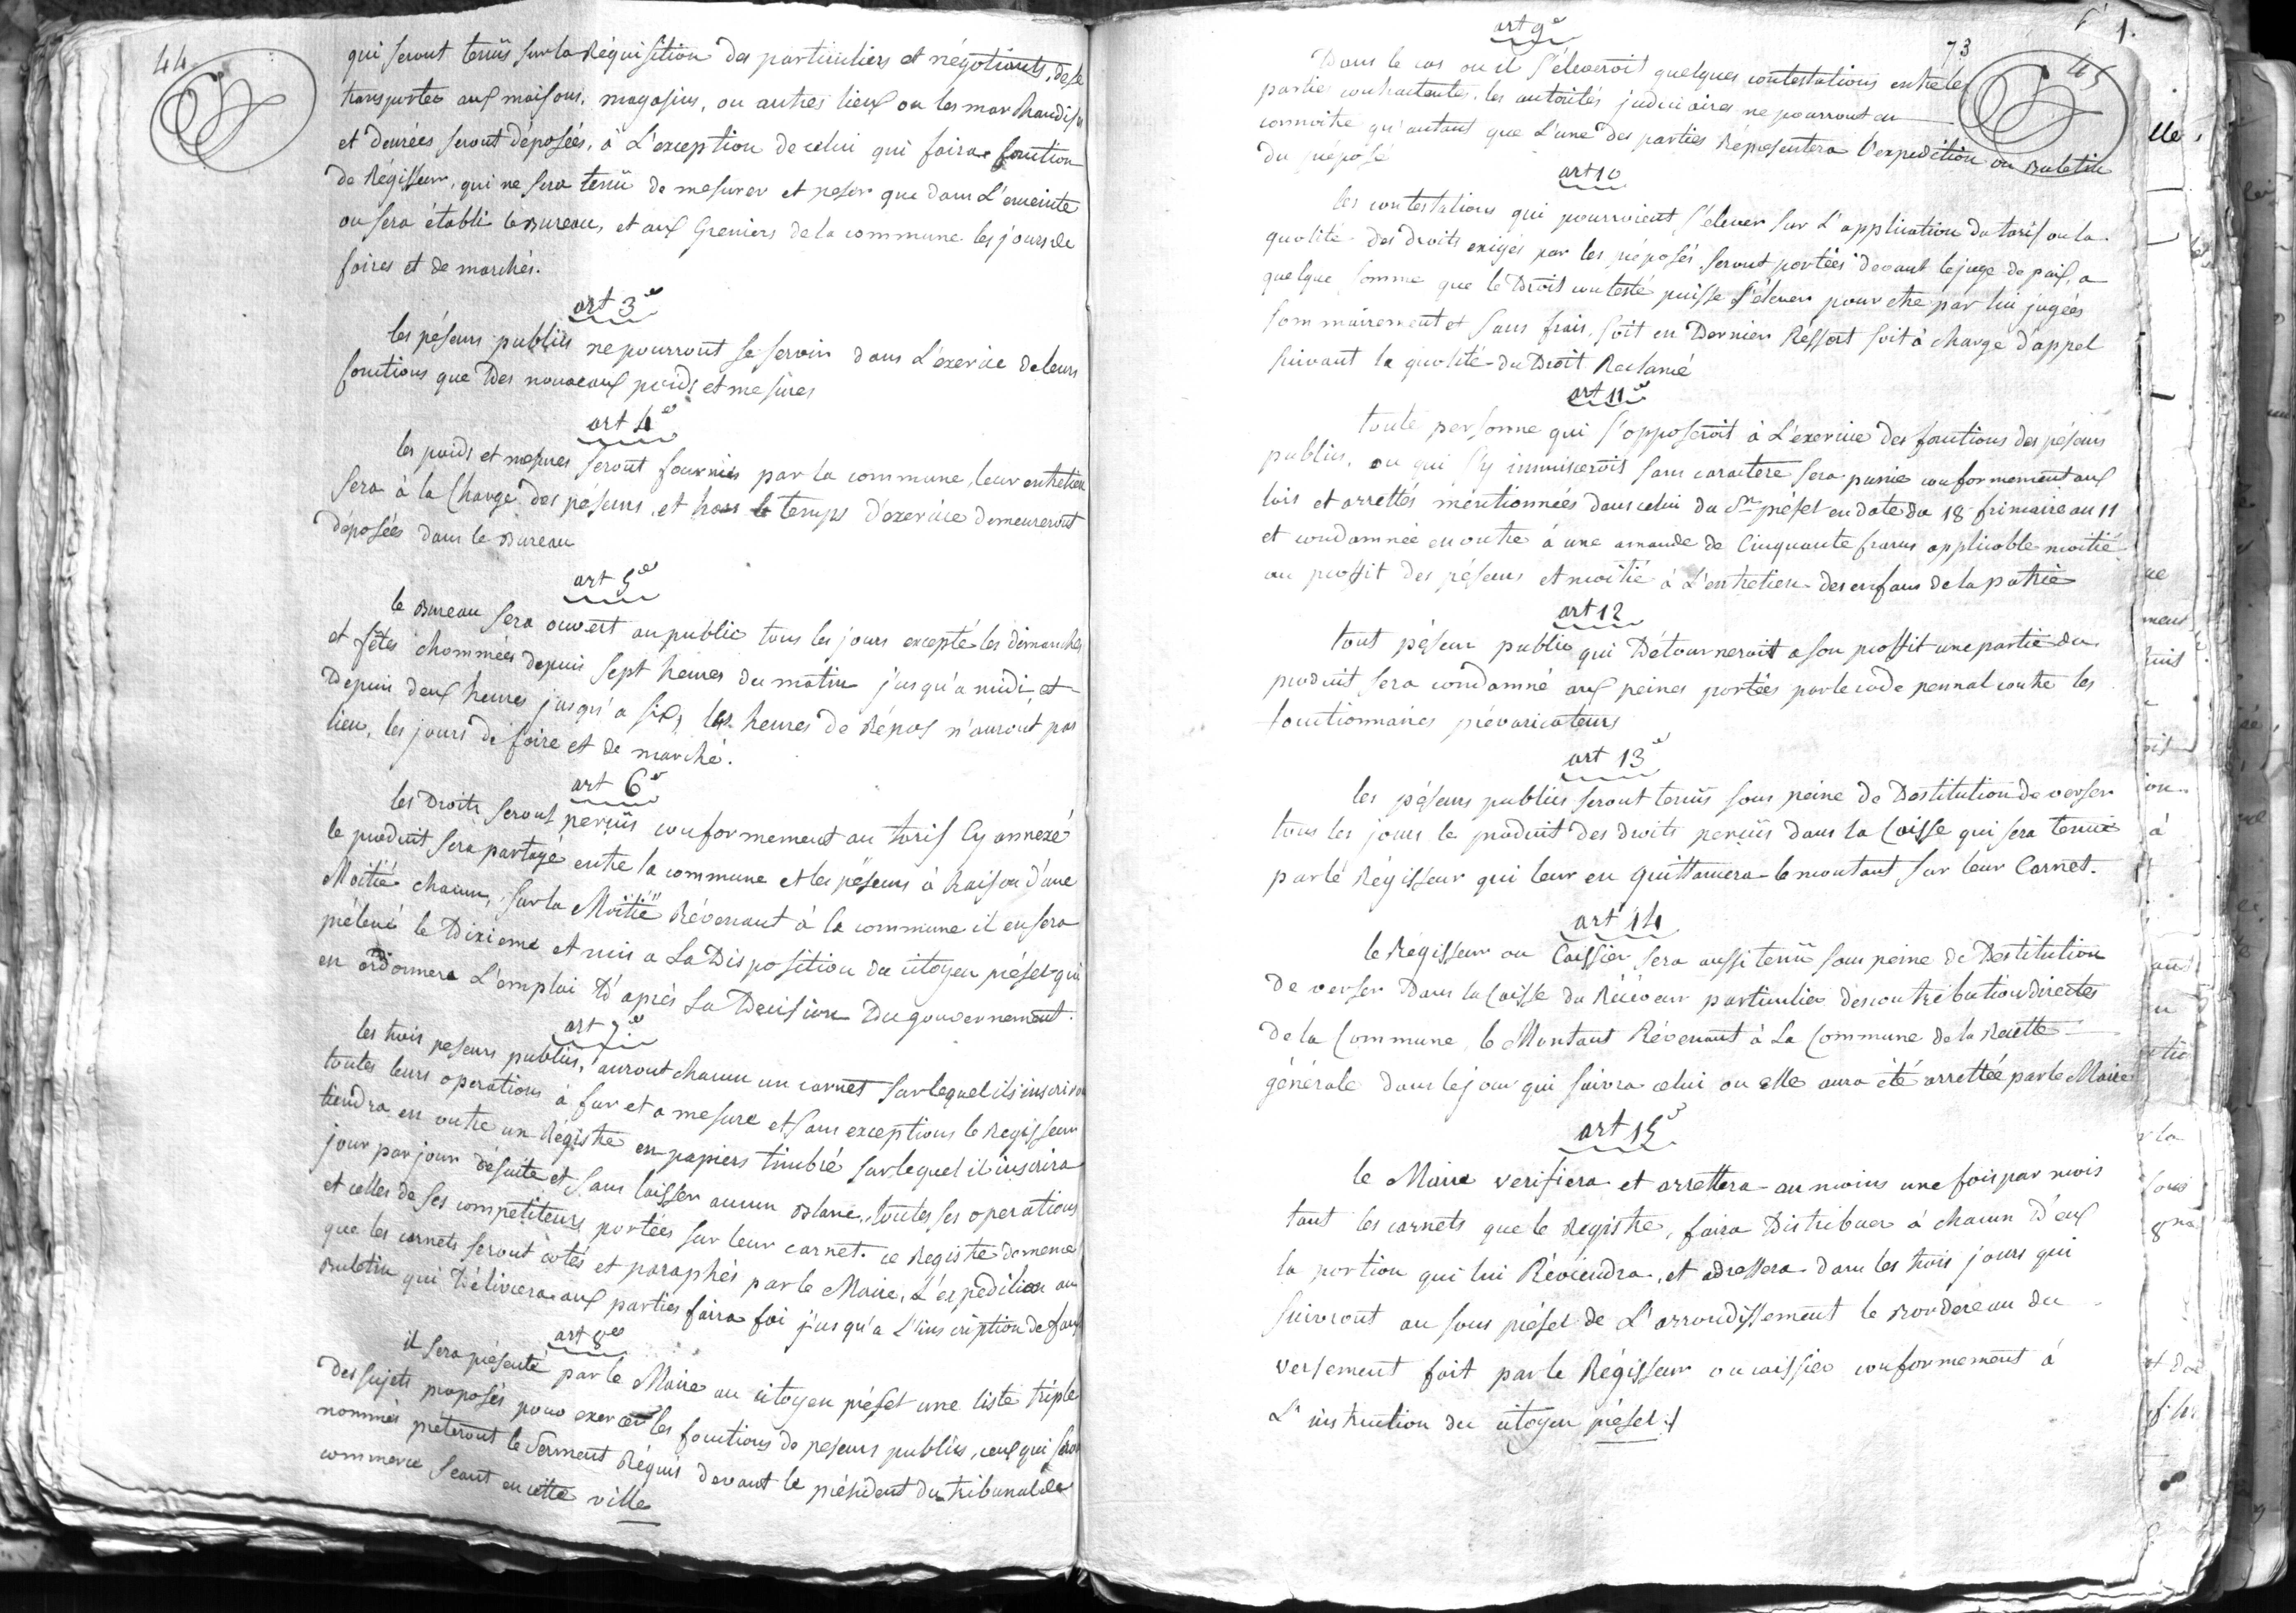 44
qui seront tenüs sur la Réquisition des particuliers et négotiants, de se
transporter aux maisons, magasins, ou autres lieux ou les marchandises
et denrées seront déposées, à L'exception de celui qui faira fonction
de Régisseur, qui ne sera tenü de mesurer et peser que dans L'enceinte
ou sera établi le Bureau, et aux Greniers de la commune les jours de
foires et de marchés.
art 3e
les péseurs publics ne pourront se servir dans L'exercice de leurs
fonctions que Des nouveaux poids et mesures
art 4e
les poids et mesures seront fournies par la commune, leur entretien
sera à la Charge des péseurs, et hors le temps d'exercice demeureront
déposées dans le Bureau
art 5e
le Bureau sera ouvert au public tous les jours excepté les dimanches
et fêtes chommées depuis sept heures du matin jusqu'a midi, et
Depuis deux heures jusqu'a six, les heures de Répos n'auront pas
lieu, les jours de foire et de marché.
art 6e
les Droits seront perçüs conformement au tarif Cy annexé
le produit sera partagé entre la commune et les péseurs à Raison d'une
Moitié chacun, sur la Moitié Révenant à la commune il en sera
prélevé le Dixieme et mis a La Disposition du citoyen préfet qui
en ordonnera L'emploi D'après La Decision Du gouvernement.
art 7e
les trois peseurs publics, auront chacun un carnet sur lequel ils inscriront
toutes leurs operations à fur et a mesure et sans exceptions le Regisseur
tiendra en outre un Régistre en papiers timbré sur lequel il inscrira
jour par jour désuite et sans laisser aucun Blanc, toutes ses operations
et celles de ses competiteurs portées sur leur carnet. ce Registre de meme
que les carnets seront cotés et paraphés par le Maire, L'expedition ou
Buletin qui Délivrera aux parties faira foi jusqu'a L'inscription de faux
art 8e
il sera présenté par le Maire au citoyen préfet une liste triple
des sujets proposés pour exercer les fonctions de peseurs publics, ceux qui seront
nommés préteront le Serment Réquis devant le président du tribunal de
commerce seant en cette ville
1.
73
45
art 9e
Dans le cas ou il s'éleveroit quelques contestations entre les
partie contractantes, les autorités judiciaires ne pourront en
connoitre qu'autant que L'une des parties Répresentera L'expedition ou Buletin
du préposé
art 10
les contestations qui pourroient s'élever sur L'application du tarif ou la
quotité des Droits exigés par les préposés seront portées devant le juge de paix, a
quelque somme que le Droit contesté puisse s'élever pour etre par lui jugées
sommairement et sans frais, soit en Dernier Ressort soit à charge d'appel
suivant la quotité du Droit Reclamé
art 11e
toute personne qui s'opposeroit à L'exercice des fonctions des péseurs
publics, ou qui s'y immisceroit sans caractère sera punie conformement aux
lois et arrettés mentionnées dans celui du Sr préfet en date du 18 frimaire an 11
et condamnée en outre à une amande de Cinquante francs applicable moitié
au proffit des péseurs et moitié à L'entretien des enfans de la patrie
art 12
tout péseur public qui Détourneroit a son proffit une partie du
produit sera condamné aux peines portées par le code pennal contre les
fonctionnaires prévaricateurs
art 13e
les péseurs publics seront tenüs sous peine de Destitution de verser
tous les jours le produit des droits perçüs dans la Caisse qui sera tenüe
par lé Régisseur qui leur en quittancera le montant sur leur Carnet.
art 14
le Régisseur ou Caissier sera aussi tenü sous peine de Destitution
De verser Dans la Caisse du Réceveur particulier des contribution directes
de la Commune, le Montant Révenant à La Commune de la Recette
générale dans le jour qui suivra celui ou elle aura été arrettée par le Maire
art 15e
le Maire verifiera et arrettera au moins une fois par mois
tant les carnets que le Registre, faira Distribuer à chacun D'eux
la portion qui lui Réviendra, et adressera dans les trois jours qui
suivront au sous préfet de L'arrondissement le Bordereau du
versement fait par le Régisseur ou caissier conformement à
L'instruction du citoyen préfet